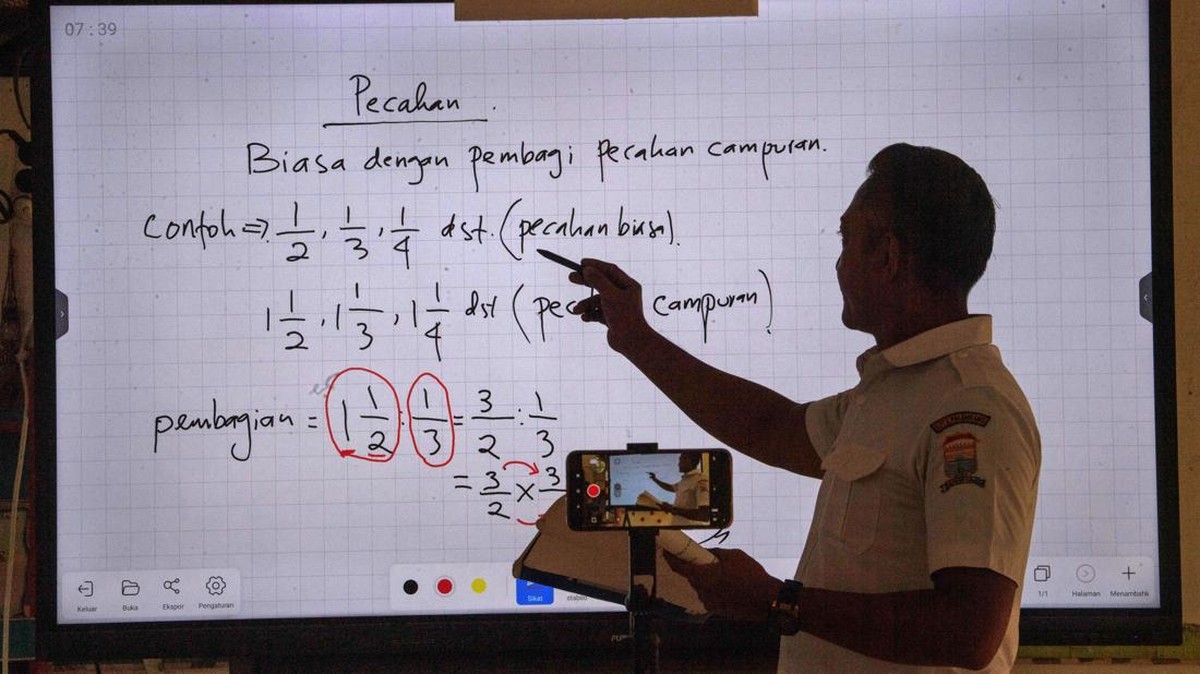 07:39
Pecahan.
Biasa dengan pembagi pecahan campuran.
Contoh ⇒ 1/2, 1/3, 1/4 dst. (pecahan biasa).
1 1/2, 1 1/3, 1 1/4 dst ( campuran)
pembagian = 1 1/2 : 1/3 = 3/2 : 1/3
= 3/2 × 3
Keluar Buka Ekspor Pengaturan Sikat 1/1 Halaman Menambahk